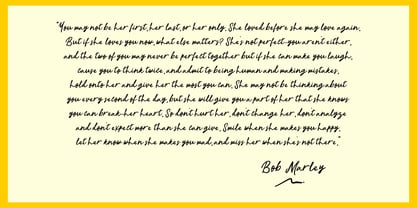 "You may not be her first, her last, or her only. She loved before she may love again.
But if she loves you now, what else matters? She's not perfect-you aren't either,
and the two of you may never be perfect together but if she can make you laugh,
cause you to think twice, and admit to being human and making mistakes,
hold onto her and give her the most you can. She may not be thinking about
you every second of the day, but she will give you a part of her that she knows
you can break-her heart. So don't hurt her, don't change her, don't analyze
and don't expect more than she can give. Smile when she makes you happy,
let her know when she makes you mad, and miss her when she's not there."
Bob Marley